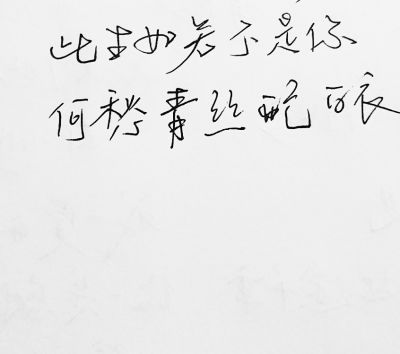 此生如若不是你
何 青丝配白衣